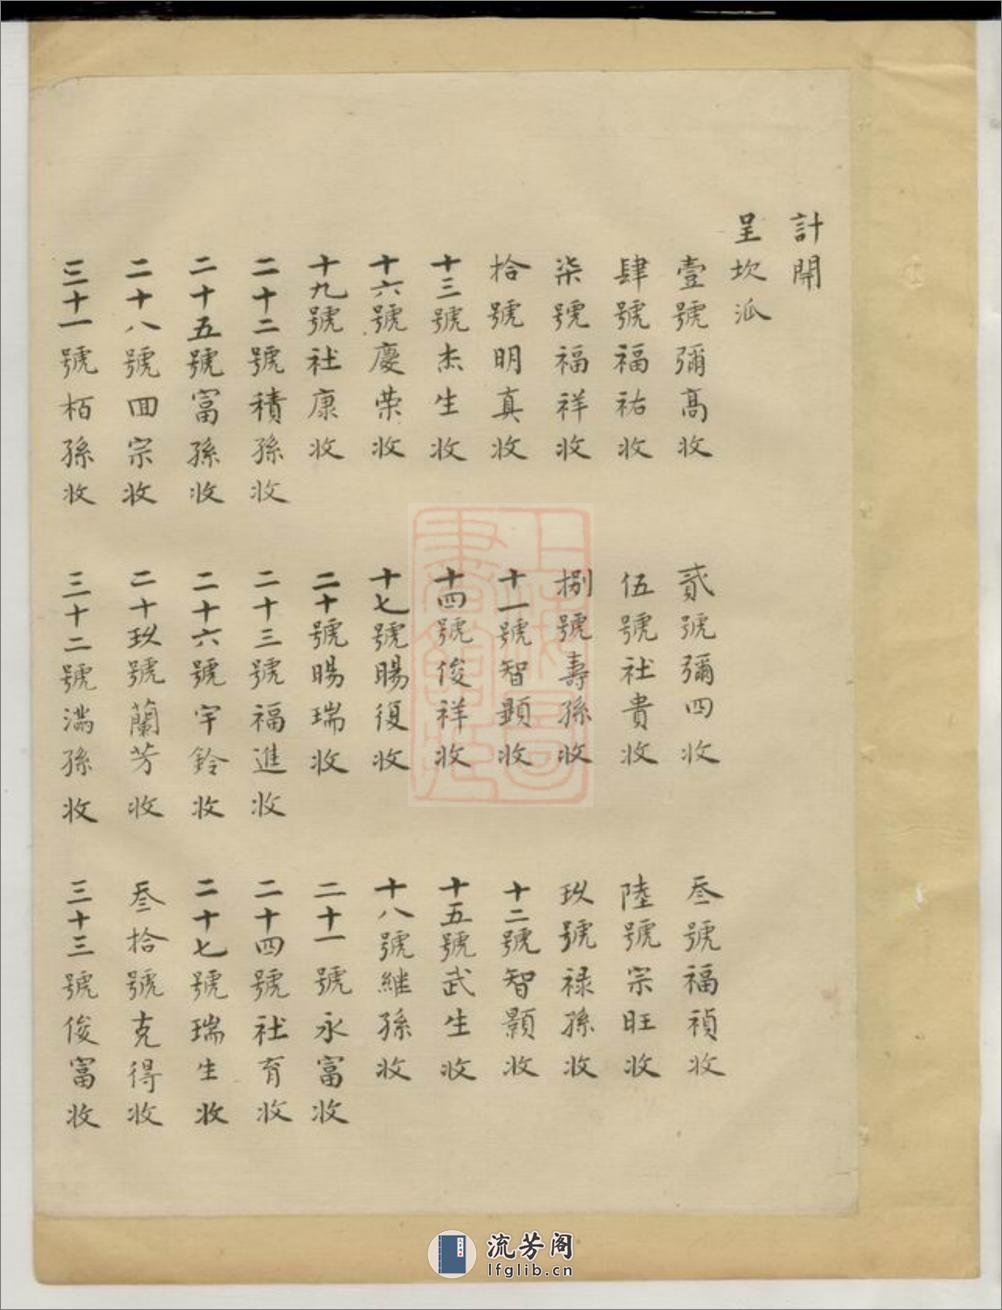 計開
呈坎派
壹號彌高收 貳號彌四收 叁號福禎收
肆號福祐收 伍號社貴收 陸號宗旺收
柒號福祥收 捌號壽孫收 玖號禄孫收
拾號明真收 十一號智顕收 十二號智顥收
十三號杰生收 十四號俊祥收 十五號武生收
十六號慶荣收 十七號賜復收 十八號継孫收
十九號社康收 二十號賜瑞收 二十一號永富收
二十二號積孫收 二十三號福進收 二十四號社育收
二十五號富孫收 二十六號宇鈴收 二十七號瑞生收
二十八號回宗收 二十玖號蘭芳收 叁拾號克得收
三十一號栢孫收 三十二號滿孫收 三十三號俊富收
上海圖書館藏
流芳阁
lfglib.cn